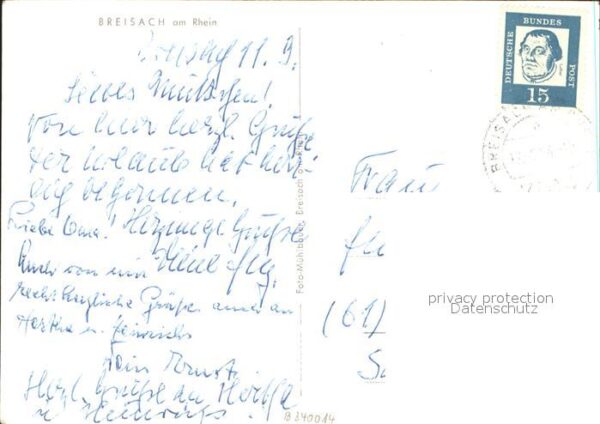 BREISACH am Rhein
Breisach 11. 9.
Liebes Muttchen!
Von hier herzl. Grüße
der Urlaub hat herr-
begonnen.
Herzinnige Grüße
Liebe Oma!
Auch von mir
recht herzliche Grüße auch an
Hertha u. Heinrich
Dein Ernst
Herzl. Grüße an Hertha
u Heinrich!
B 340014
Foto-Mühlbauer, Breisach am Rhein
DEUTSCHE BUNDES POST
15
BREISACH
Frau
(61)
privacy protection
Datenschutz